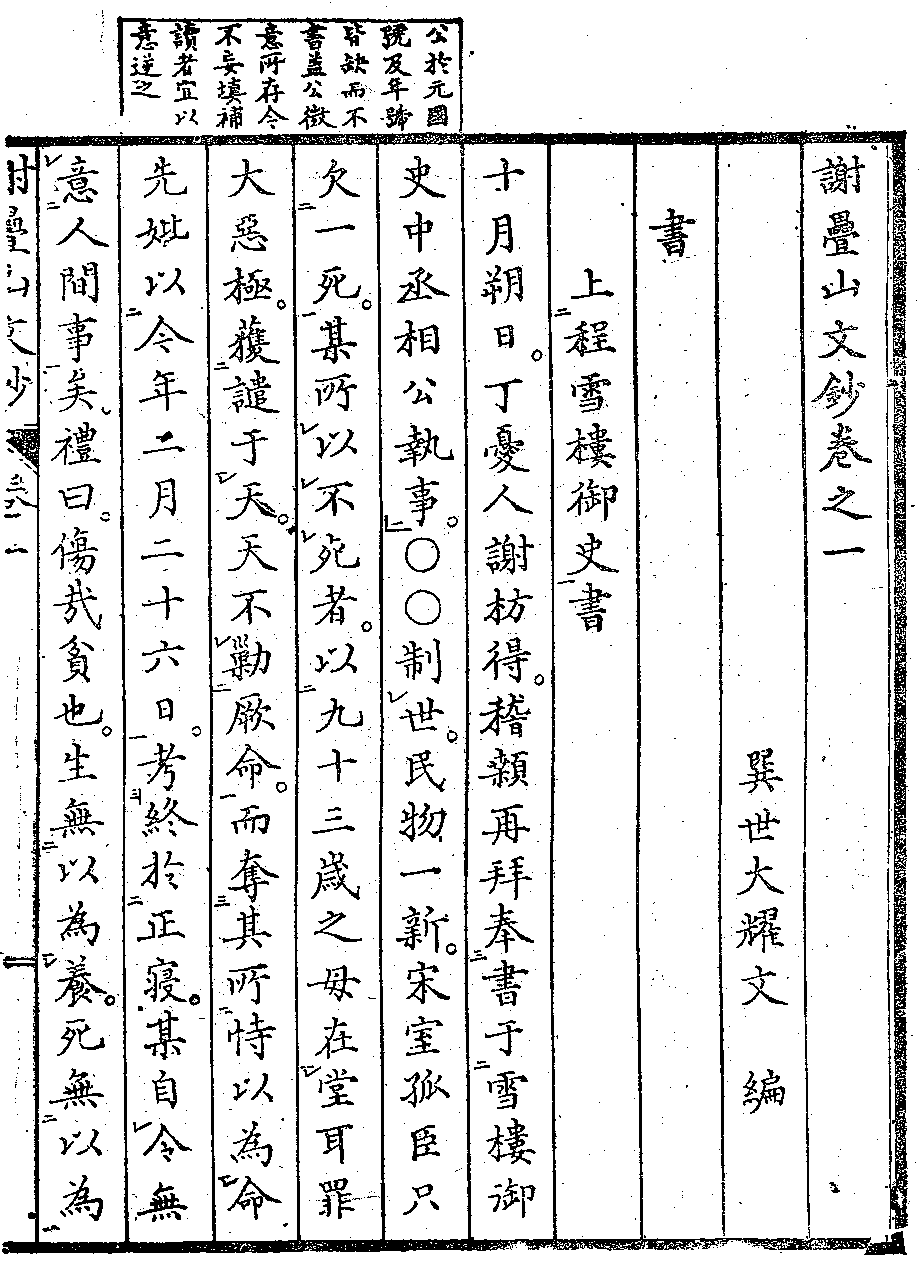 謝疊山文鈔卷之一
巽世大耀文 編
書
上程雪樓御史書
十月朔日。丁憂人謝枋得。稽顙再拜奉書于雪樓御
史中丞相公執事。〇〇制世。民物一新。宋室孤臣只
欠一死。某所以不死者。以九十三歲之母在堂耳罪
大惡極。獲譴于天。天不勦厥命。而奪其所恃以為命
先妣以今年二月二十六日。考終於正寢。某自今無
意人間事矣。禮曰。傷哉貧也。生無以為養。死無以為
公於元國
號及年號
皆缺而不
書蓋公微
意所存今
不妄填補
讀者宜以
意逆之
謝疊山文鈔 卷一 一